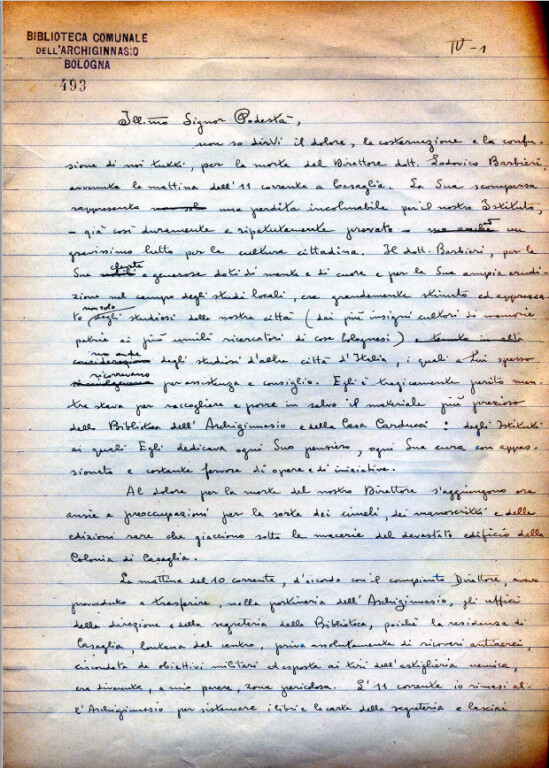 BIBLIOTECA COMUNALE
DELL'ARCHIGINNASIO
BOLOGNA
493
IV-1
Ill.mo Signor Podestà,
non so dirVi il dolore, la costernazione e la confu-
sione di noi tutti, per la morte del Direttore dott. Lodovico Barbieri,
avvenuta la mattina dell'11 corrente a Casaglia. La Sua scomparsa
rappresenta non sol una perdita incolmabile per il nostro Istituto,
- già così duramente e ripetutamente provato - ma anche un
gravissimo lutto per la cultura cittadina. Il dott. Barbieri, per le
Sue elette e generose doti di mente e di cuore e per la Sua ampia erudi-
zione nel campo degli studi locali, era grandemente stimato ed apprezza-
to non solo dagli studiosi della nostra città (dai più insigni cultori di memorie
patrie ai più umili ricercatori di cose bolognesi) e tenuto in alta
considerazione ma anche degli studiosi d'altre città d'Italia, i quali a Lui spesso
ricorrevano per assistenza e consiglio. Egli è tragicamente perito men-
tre stava per raccogliere e porre in salvo il materiale più prezioso
della Biblioteca dell'Archiginnasio e della Casa Carducci: degli Istituti
ai quali Egli dedicava ogni Suo pensiero, ogni Sua cura con appas-
sionato e costante fervore di opere e di iniziative.
Al dolore per la morte del nostro Direttore s'aggiungono ora
ansie e preoccupazioni per la sorte dei cimeli, dei manoscritti e delle
edizioni rare che giacciono sotto le macerie del devastato edificio della
Colonia di Casaglia.
La mattina del 10 corrente, d'accordo con il compianto Direttore, avevo
provveduto a trasferire, nella portineria dell'Archiginnasio, gli uffici
della direzione e della segreteria della Biblioteca, poiché la residenza di
Casaglia, lontana dal centro, priva assolutamente di ricoveri antiaerei,
circondata da obiettivi militari ed esposta ai tiri dell'artiglieria nemica,
era divenuta, a mio parere, zona pericolosa. L'11 corrente io rimasi al-
l'Archiginnasio per sistemare i libri e le carte della segreteria e lasciai